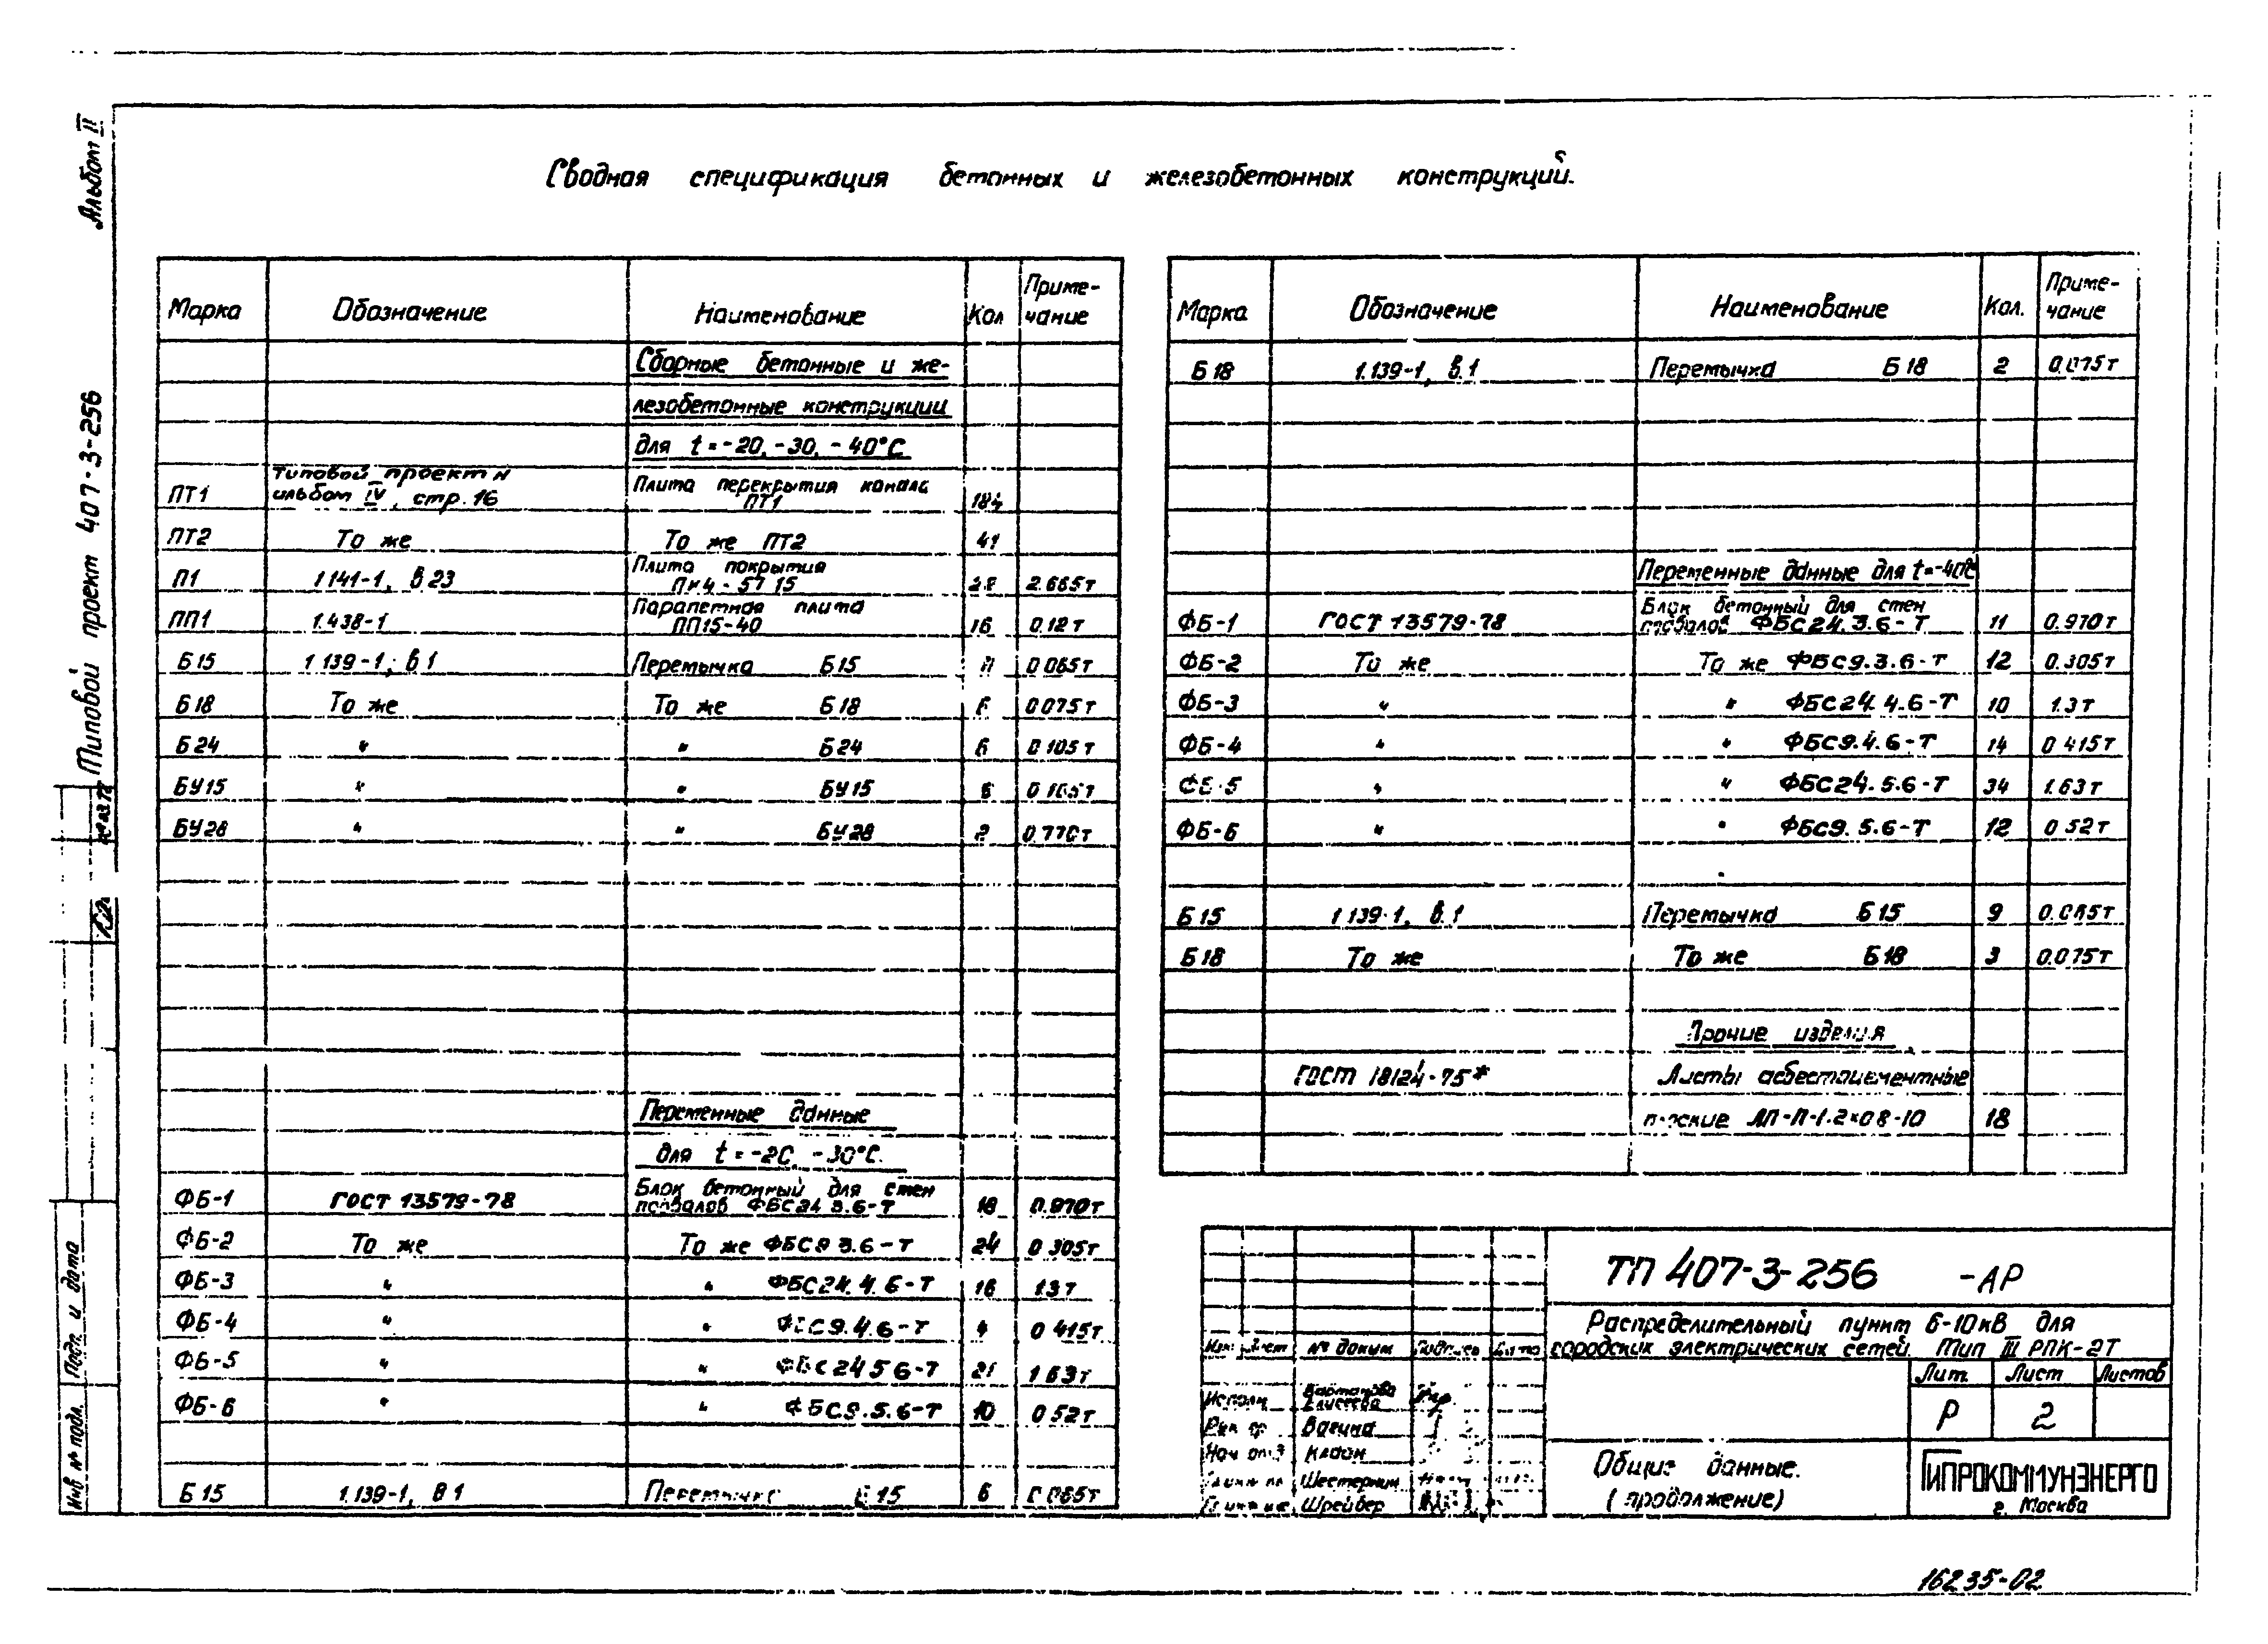 Альбом II
Типовой проект 407-3-256
Сводная спецификация бетонных и железобетонных конструкций.
Марка Обозначение Наименование Кол Приме-
чание
Сборные бетонные и же-
лезобетонные конструкции
для t=-20,-30,-40°С
ПТ1 Типовой проект н Плита перекрытия канала
альбом IV, стр. 16 ПТ1 184
ПТ2 То же То же ПТ2 41
П1 1 141-1, в 23 Плита покрытия
ПК4-57 15 2.665т
ПП1 1.438-1 Парапетная плита
ПП15-40 16 0.12т
Б15 1 139-1, в1 Перемычка Б15 0 065т
Б18 То же То же Б18 6 0 075т
Б24 " " Б24 6 0 105т
БУ15 " " БУ15
БУ28 " " БУ28 2 0.770т
Переменные данные
для t=-20, -30°С.
ФБ-1 ГОСТ 13579-78 Блок бетонный для стен
подвалов ФБС24 3.6-Т 18 0.970т
ФБ-2 То же То же ФБС9 3.6-Т 24 0 305т
ФБ-3 " " ФБС24.4.6-Т 16 1.3т
ФБ-4 " " ФБС9.4.6-Т 4 0 415т
ФБ-5 " " ФБС24 5 6-Т 21 1 63т
ФБ-6 " " ФБС9.5.6-Т 10 0 52т
Б15 1.139-1, В 1 Перемычка Б15 6 0 065т
Марка Обозначение Наименование Кол. Приме-
чание
Б18 1.139-1, в.1 Перемычка Б18 2 0.075т
Переменные данные для t=-40°С
ФБ-1 ГОСТ 13579-78 Блок бетонный для стен
подвалов ФБС24.3.6-Т 11 0.970т
ФБ-2 То же То же ФБС9.3.6-Т 12 0.305т
ФБ-3 " " ФБС24.4.6-Т 10 1.3т
ФБ-4 " " ФБС9.4.6-Т 14 0 415т
ФБ-5 " " ФБС24.5.6-Т 34 1.63т
ФБ-6 " " ФБС9.5.6-Т 12 0 52т
Б15 1 139-1, в.1 Перемычка Б15 9 0.065т
Б18 То же То же Б18 3 0.075т
Прочие изделия
ГОСТ 18124-75* Листы асбестоцементные
плоские ЛП-П-1.2×0 8-10 18
ТП 407-3-256 -АР
Распределительный пункт 6-10кВ для
городских электрических сетей. Тип III РПК-2Т
Изм Лист № докум Подпись Дата
Лит. Лист Листов
Р 2
Исполн Вартанова
Елисеева
Рук гр Вагина
Нач отд
Шестернин
Шрейбер
Общие данные.
(продолжение)
ГИПРОКОММУНЭНЕРГО
г. Москва
Подп. и дата
Инв № подл.
16235-02